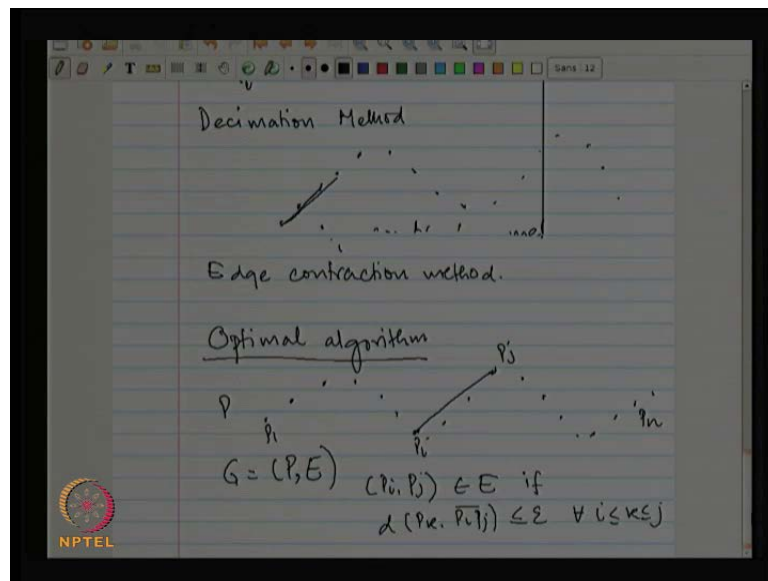 Sans 12
Decimation Method
Edge contraction method.
Optimal algorithm
P
P1
Pi
Pj
Pn
G = (P, E) (Pi, Pj) ∈ E if
d (Pk, P̅i̅P̅j̅) ≤ ε ∀ i ≤ k ≤ j
NPTEL